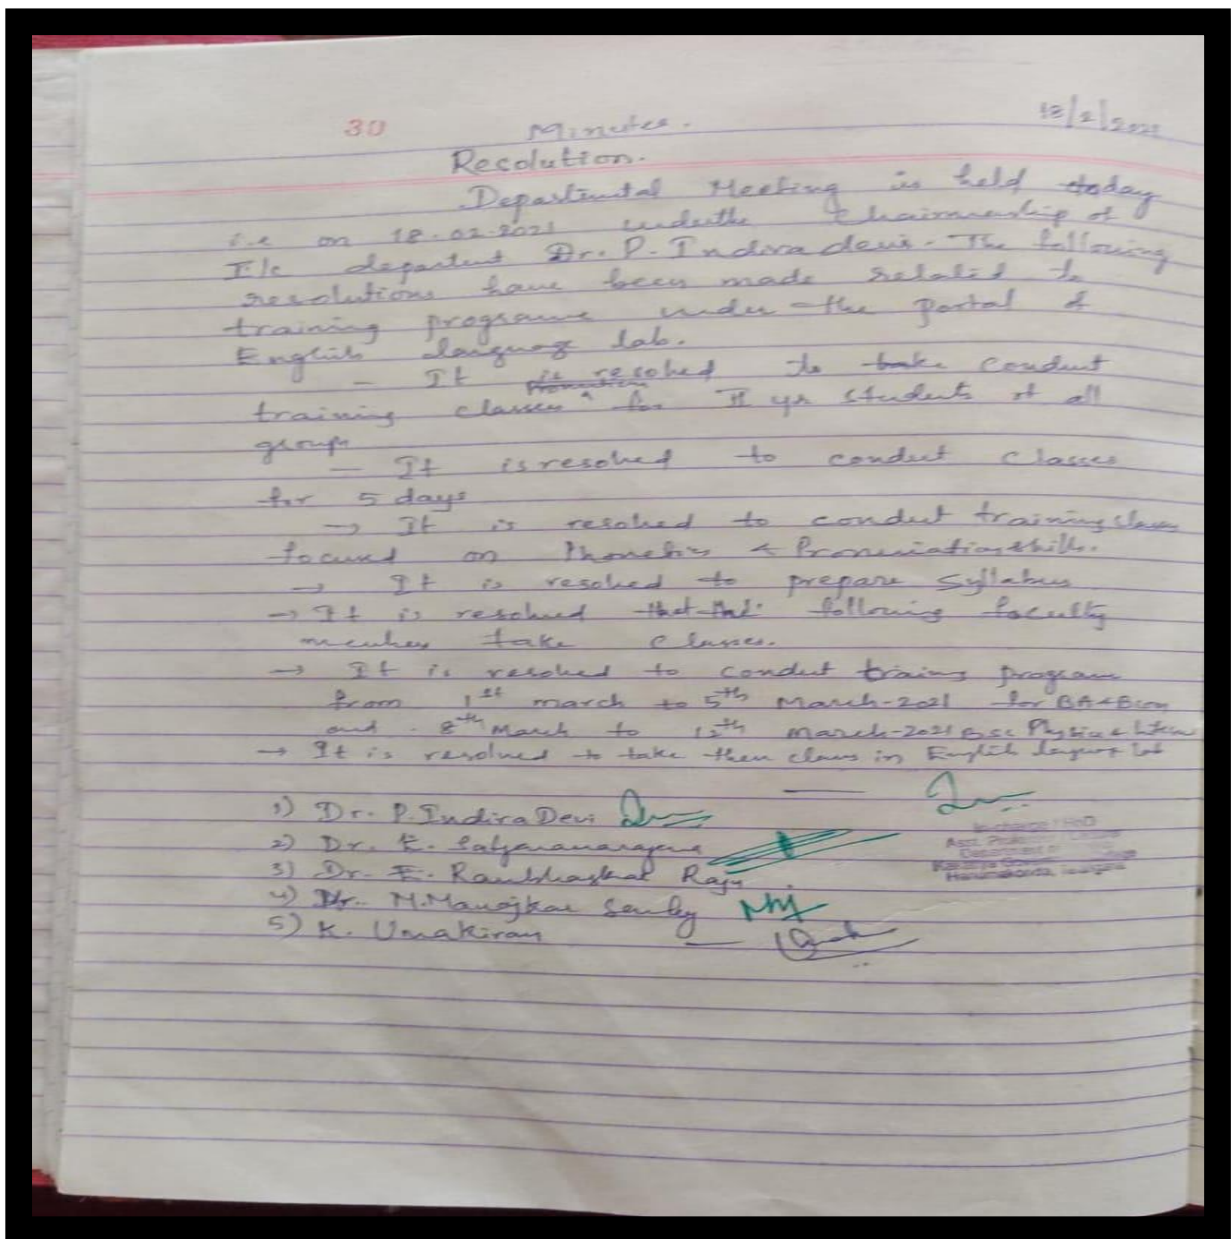 30 Minutes. 18/2/2021
Resolution.
Departmental Meeting is held today
i.e on 18.02.2021 under the Chairmanship of
I/c depart Dr. P. Indira devi. The following
resolutions have been made related to
training programe under the portal of
English language lab.
- It is resolved to take conduct
training classes for II yr students of all
groups
- It is resolved to conduct classes
for 5 days
→ It is resolved to conduct training class
focused on Phonetics & Pronunciation skills.
→ It is resolved to prepare Syllabus
→ It is resolved that the following faculty
member take classes.
→ It is resolved to conduct training program
from 1st march to 5th March-2021 for BA & Bcom
and 8th March to 12th march-2021 Bsc Physical &
→ It is resolved to take then class in English language lab
1) Dr. P. Indira Devi
2) Dr. E. Satyanarayana
3) Dr. E. Rambhaskar Raju
4) Dr. M. Manojkar
5) K. Umakiran
Incharge / HoD
Department of
Hanumakonda, Telangana